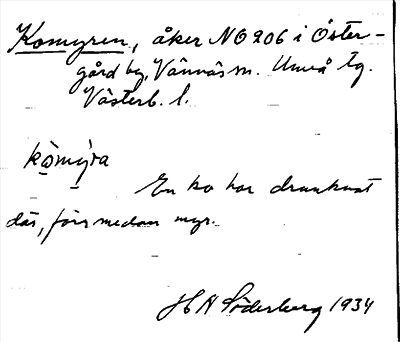 Komyren, åker NO 206 i Öster-
gård by, Vännäs sn. Umeå tg.
Västerb. l.
kòmy̆ra
En ko har drunknat
där, förr medan myr.
H A Söderberg 1934